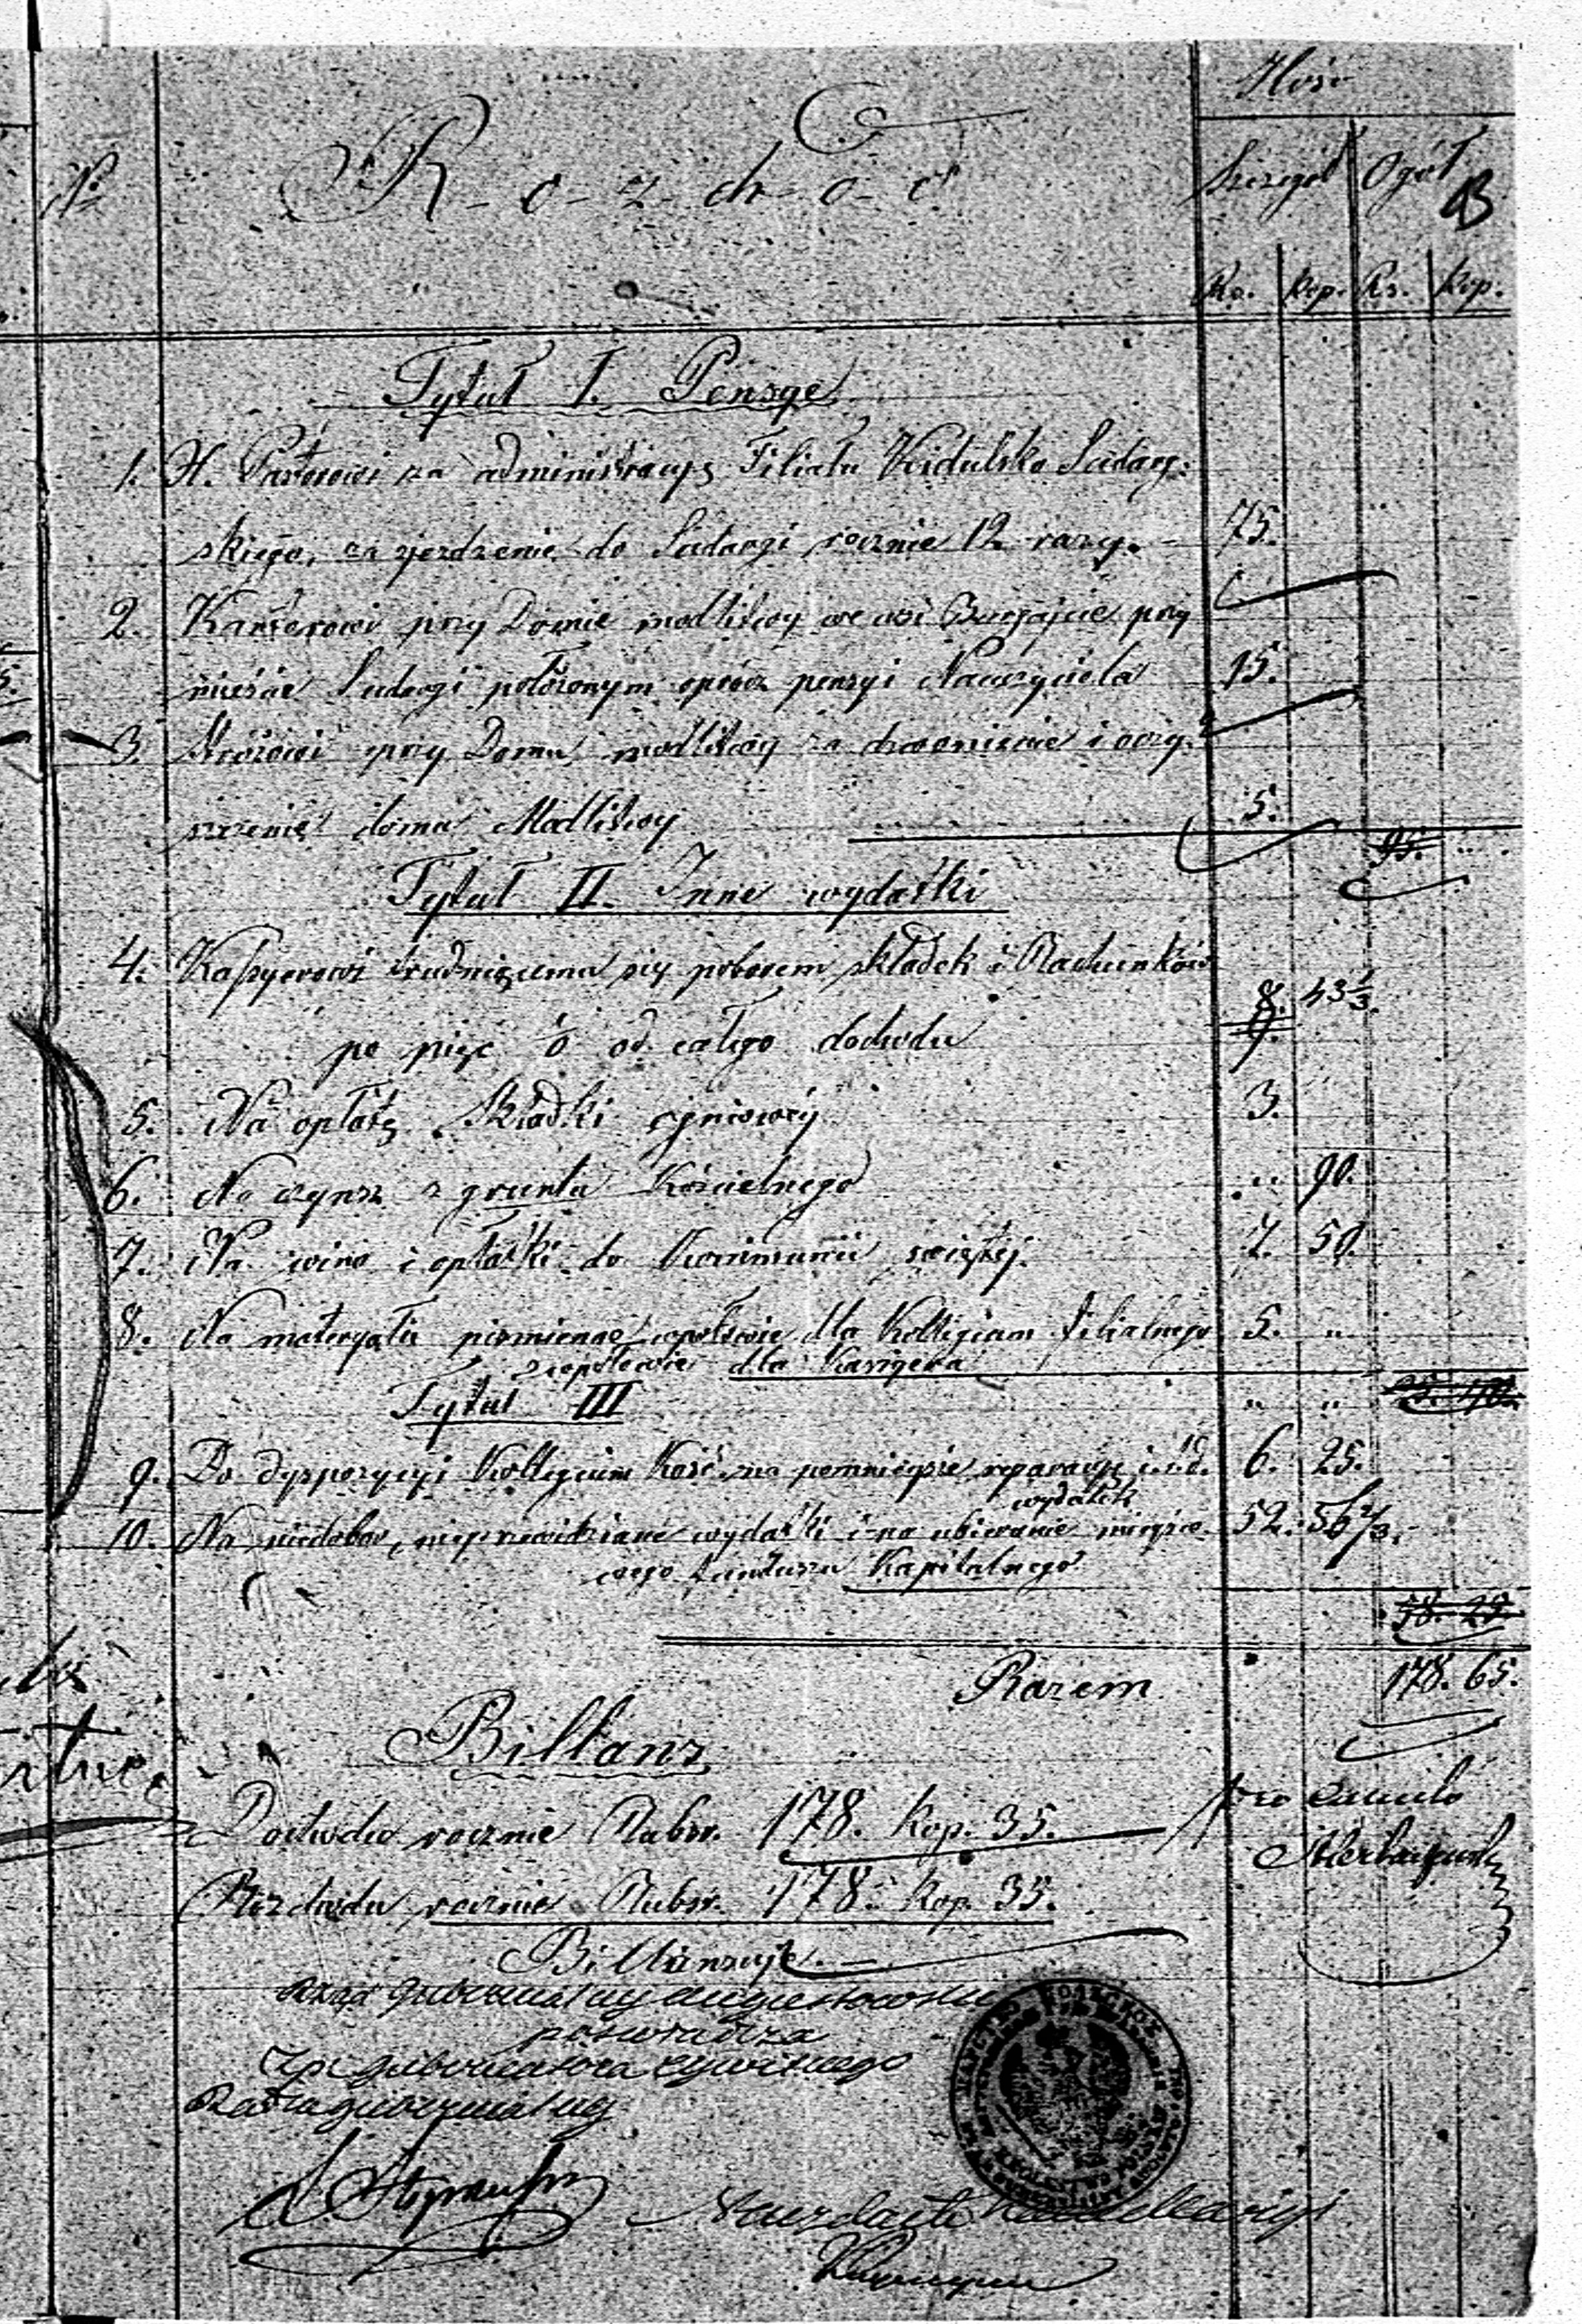 Ilość
№ Rozchód Szczegół Ogół
13
Rs. Kop. Rs. Kop.
Tytuł I. Pensye
1. X. Pastorowi za administracyę Filiału Kidulsko Sudarg-
skiego, za zjeżdżenie do Sudargi rocznie 12 razy. 75.
2. Kantorowi przy Domie modlitwy we wsi przy
mieście Sudargi położonym oprócz pensyi Nauczyciela 15.
3. Stróżowi przy Domu modlitwy za dzwonienie i oczy-
szczenie domu Modlitwy 5.
95. "
Tytuł II. Inne wydatki
4. Kassyerowi trudniącemu się poborem składek i Rachunków
po pięć % od całego dochodu 8. 43 1/3.
9.
5. Na opłatę Składki ogniowéy 3.
6. Na czynsz z gruntu Kościelnego " 90.
7. Na wino i opłatki do Kommunii świętéj. 7. 50.
8. Na materyały piśmienne wpołowie dla Kollegium filialnego 5. "
wpołowie dla Kassyera
Tytuł III " "
9. Do dyspozycyi Kollegium Kość. na pomniejsze reparacye i.t.d. 6. 25.
wydatek
10. Na niedobor, nieprzewidziane wydatki i na ubieranie miejsco- 52. 56 2/3.
wego funduszu Kapitalnego
58. 25.
Razem 178. 65.
Billanz
Dochodu rocznie Rubsr. 178. kop. 35.
Rozchodu rocznie Rubsr. 178. kop. 35.
Billansuje.
Rząd Gubernialny Augustowski
poświadcza
Z p. Gubernatora Cywilnego
Radca Gubernialny
Naczelnik Kancellaryi